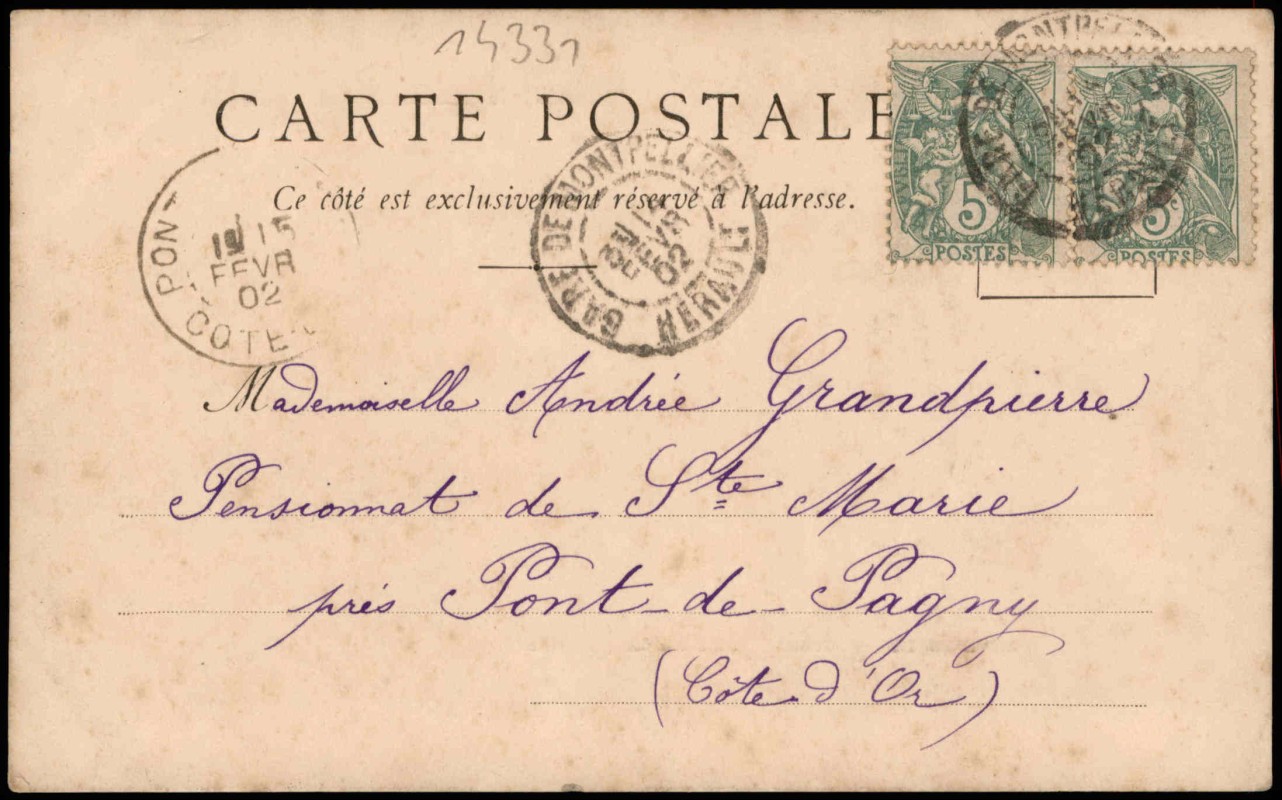 14331
CARTE POSTALE
Ce côté est exclusivement réservé à l'adresse.
PONT
15
FEVR
02
COTE
GARE DE MONTPELLIER
FEVR
02
HERAULT
5
POSTES
5
POSTES
Mademoiselle Andrée Grandpierre
Pensionnat de Ste Marie
près Pont-de-Pagny
(Côte-d'Or)